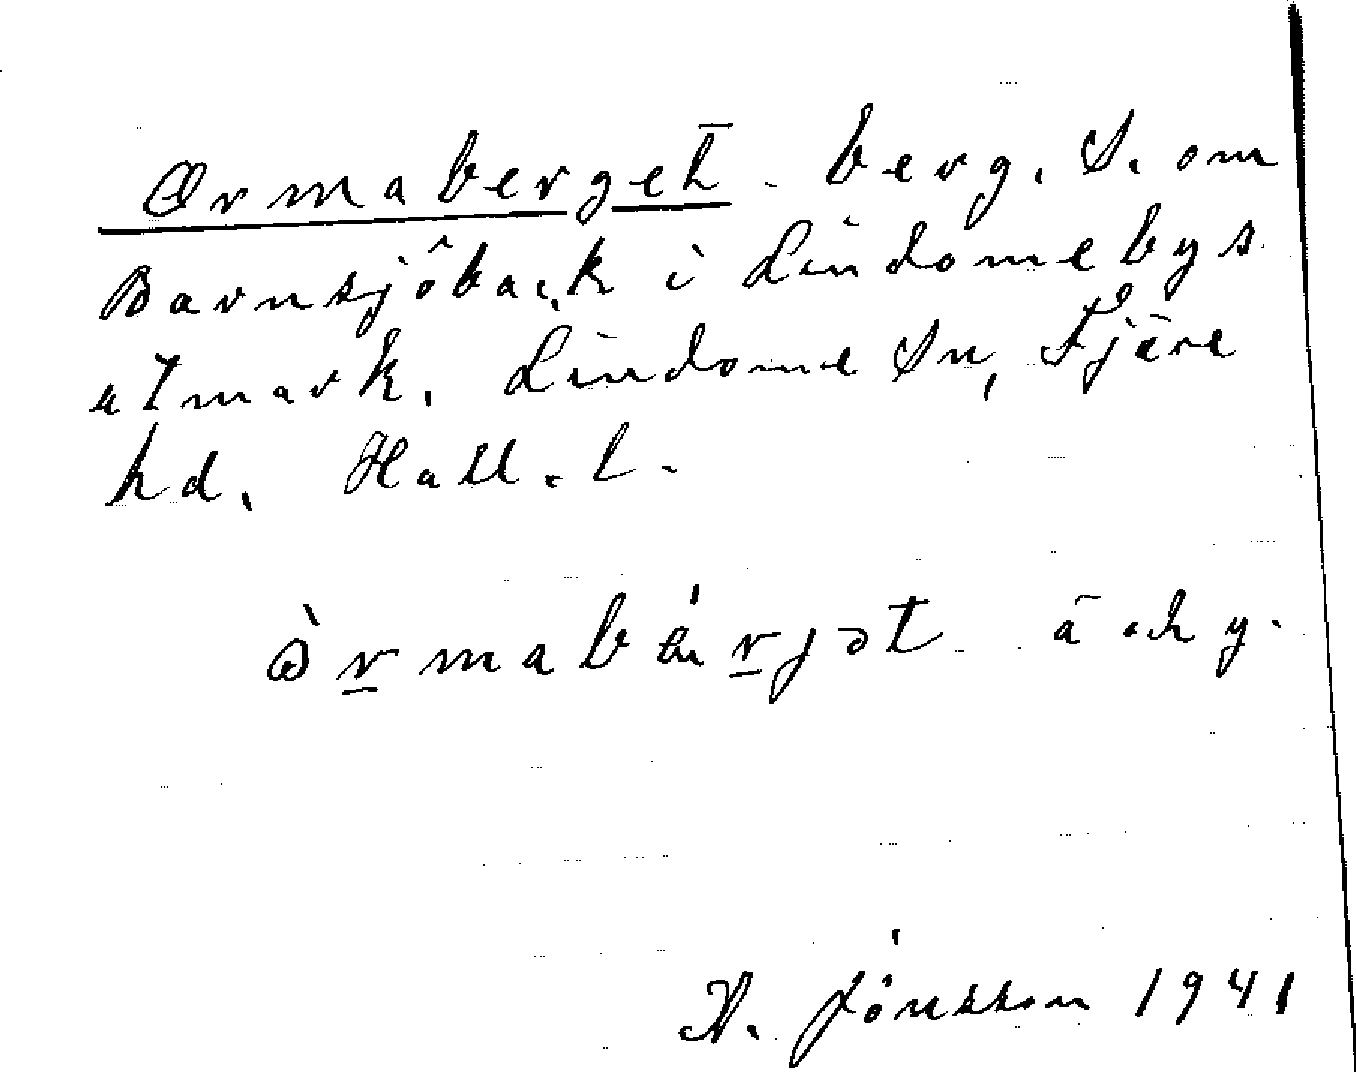 Ormaberget. berg. S. om
Barnsjöback i Lindomebys
utmark. Lindome Sn, Fjäre
hd. Hall. l.
ä och y.
H. Jönsson 1941